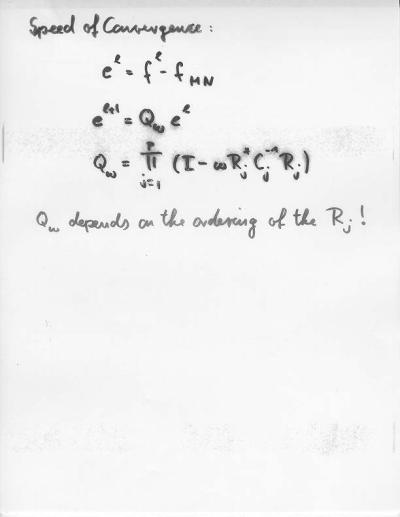 Speed of Convergence:
e^ℓ = f^ℓ - f_MN
e^{ℓ+1} = Q_ω e^ℓ
Q_ω = ∏_{j=1}^{p} (I - ωR_j^* C_j^{-1} R_j)
Q_ω depends on the ordering of the R_j!